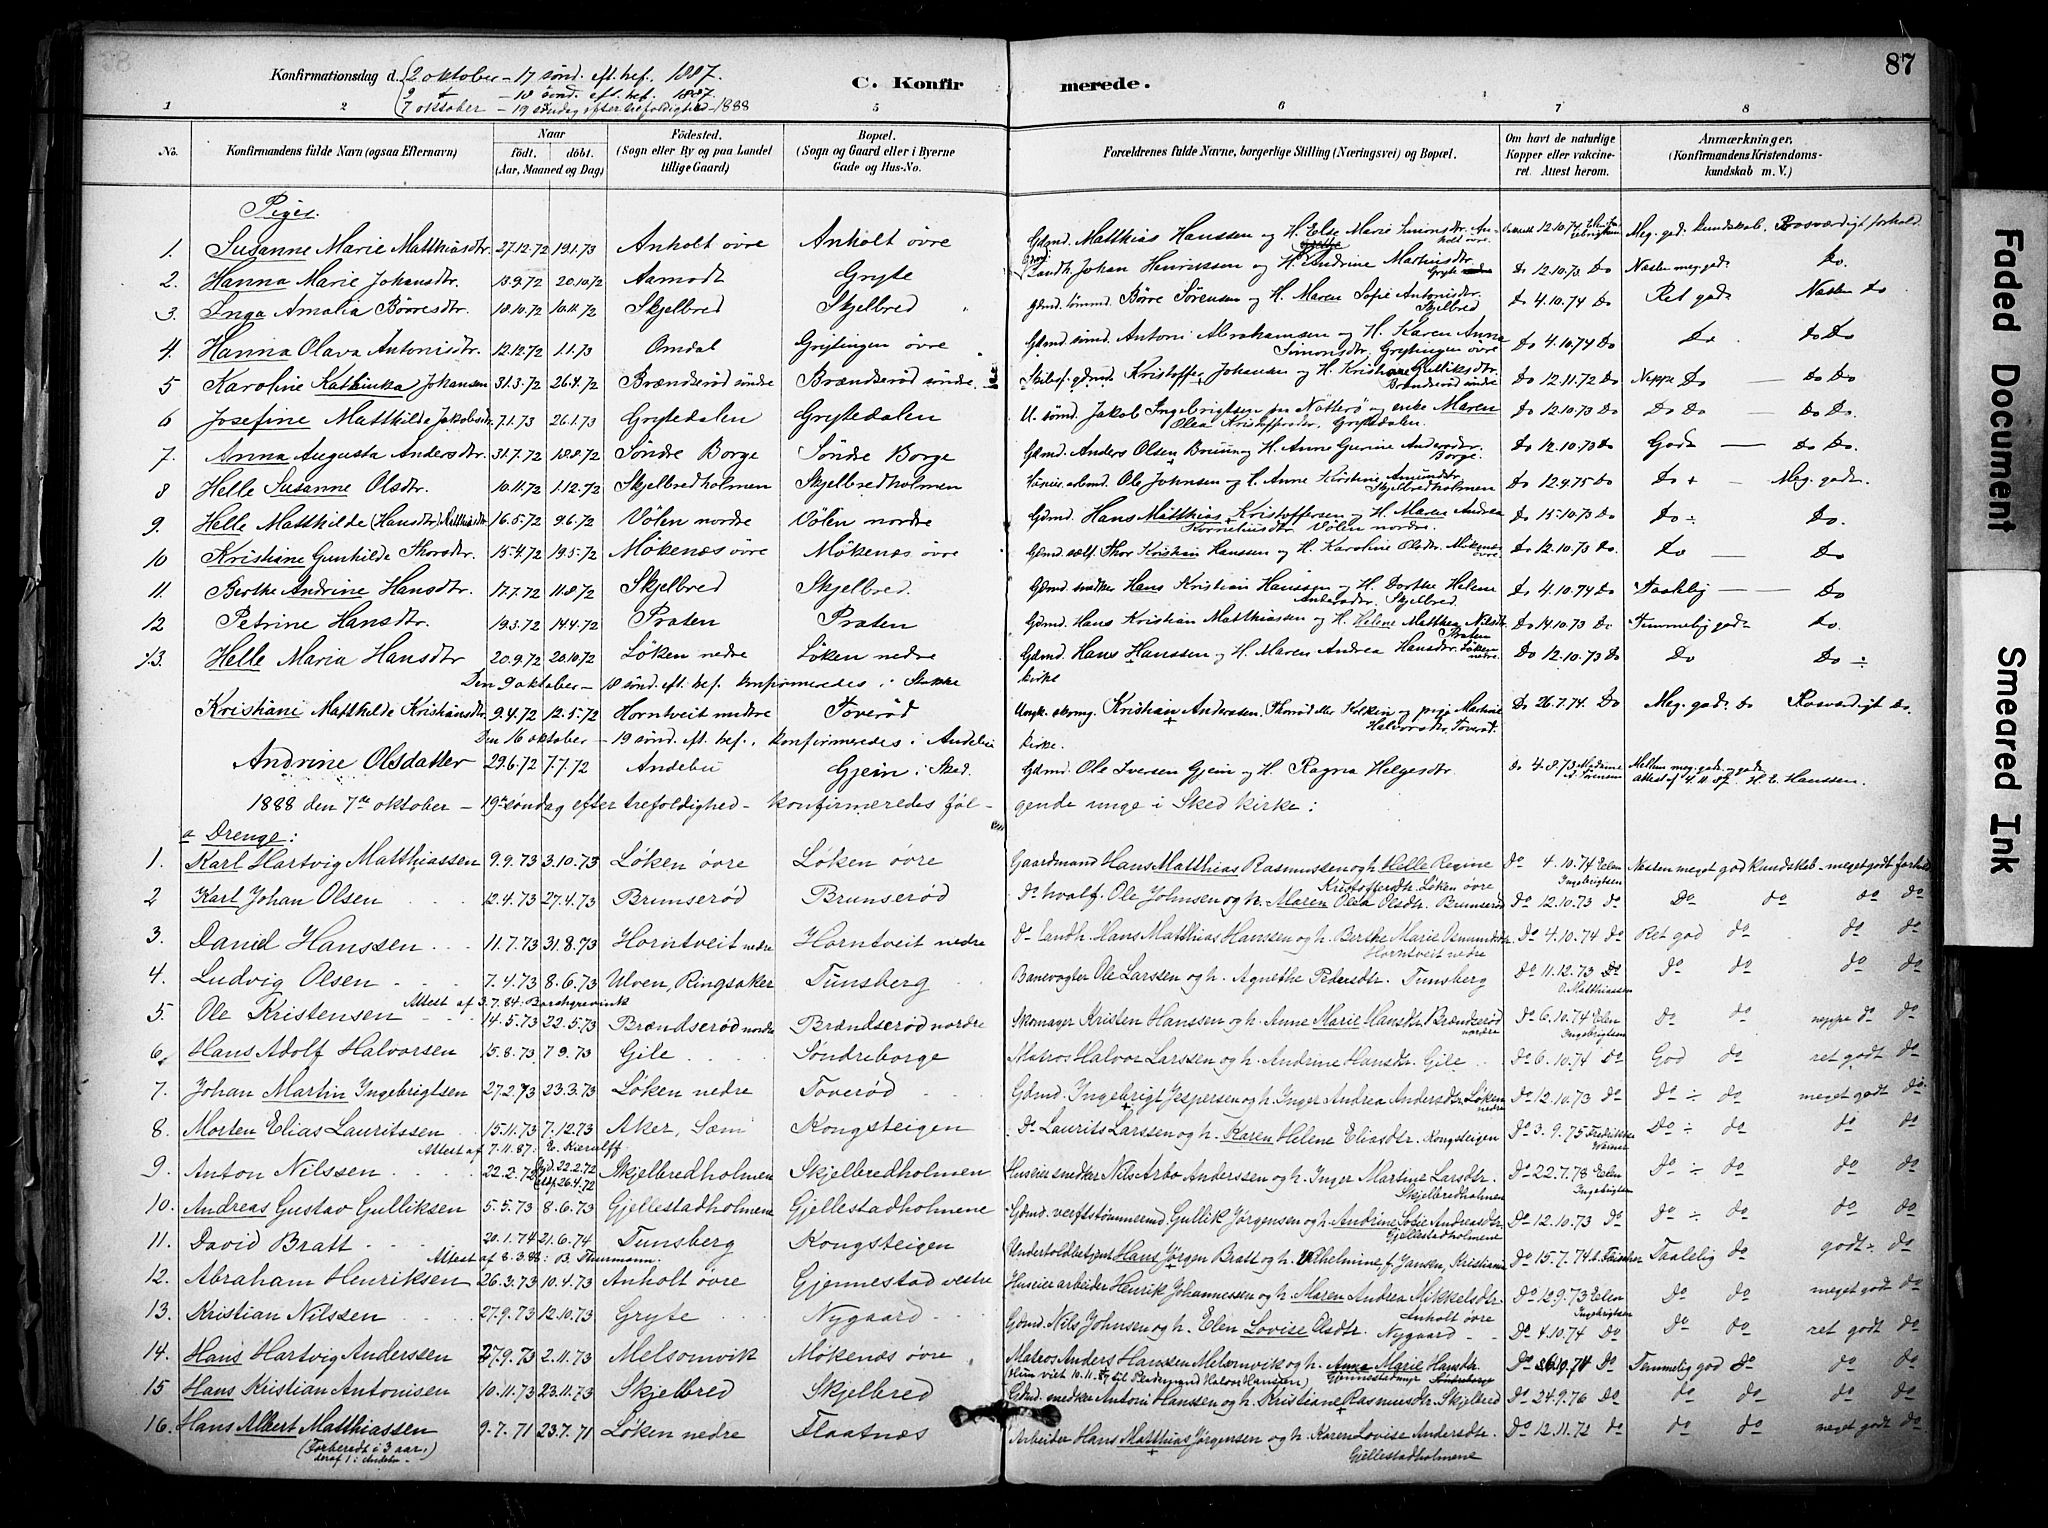 87
Konfirmationsdag d. 2 oktober - 17 sønd. eft. tref. 1887.
9 " - 18 sønd. eft. tref. 1887.
7 oktober - 19 søndag efter trefoldighed - 1888
C. Konfirmerede.
1 2 5 6 7 8
No. Konfirmandens fulde Navn (ogsaa Efternavn) Naar født. døbt. (Aar, Maaned og Dag) Fødested. (Sogn eller By og paa Landet tillige Gaard) Bopæl. (Sogn og Gaard eller i Byerne Gade og Hus-No. Forældrenes fulde Navne, borgerlige Stilling (Næringsvei) og Bopæl. Om havt de naturlige Kopper eller vakcineret. Attest herom. Anmærkninger, (Konfirmandens Kristendomskundskab m. V.)
Piger.
1. Susanne Marie Matthiasdtr. 27.12.72 19.1.73 Anholt øvre Anholt øvre Gdmd. Matthias Hanssen og H. Else Marie Simonsdtr. Anholt øvre. 12.10.74 Meg. god. kundskab. Rosværdigt forhold.
2. Hanna Marie Johansdtr. 13.9.72 20.10.72 Aamodt Gryte Landh. Johan Henriksen og H. Andrine Mathisdtr. Gryte Do 12.10.73 Do Næsten meg. god. Do.
3. Inga Amalia Børresdtr. 18.10.72 10.11.72 Skjelbred Skjelbred Gdmd. tømmd. Børre Sørensen og H. Maren Sofie Antonisdtr. Skjelbred Do 4.10.74 Do Ret god. Næsten Do
4. Hanna Olava Antonisdtr. 12.12.72 1.1.73 Omdal Grytingen øvre Gdmd. sømd. Antoni Abrahamsen og H. Karen Anna Simonsdtr. Grytingen øvre Do 4.10.74 Do Do. Do Do
5 Karoline Kathinka Johansen 31.3.72 26.4.72 Brændserød søndre Brændserød søndre. Skibsf. gdmd. Kristoffer Johansen og H. Kristiane Gulliksdtr. Brændserød søndre Do 12.11.72 Do Neppe Do — Do Do
6 Josefine Matthilde Jakobsdtr. 7.1.73 26.1.73 Grytedalen Grytedalen U. sømd. Jakob Ingebrigtsen fra Nøtterø og enke Maren Olea Kristoffersdtr. Grytedalen. Do 12.10.73 Do Do Do Do Do.
7. Anna Augusta Andersdtr. 31.7.72 18.8.72 Søndre Borge Søndre Borge Gdmd. Anders Olsen Bruun og H. Anne Gurine Andersdtr. Borge. Do 12.10.73 Do God. — Do Do.
8 Helle Susanne Olsdtr. 10.11.72 1.12.72 Skjelbredholmen Skjelbredholmen Huseier arbmd. Ole Johnsen og H. Anne Kirstine Amundsdtr. Skjelbredholmen Do 12.9.75 Do Do + — Meg. godt.
9. Helle Matthilde (Hansdtr.) Matthiasdtr 16.5.72 9.6.72 Vølen nordre Vølen nordre Gdmd. Hans Matthias Kristoffersen og H. Maren Andrea Korneliusdtr. Vølen nordre. Do 15.10.73 Do Do ÷ Do.
10 Kristiane Gunhilde Thorsdtr. 15.4.72 19.5.72 Møkenæs øvre Møkenæs øvre Gdmd. sælf. Thor Kristian Hanssen og H. Karoline Olsdtr. Møkenæs øvre. Do 12.10.73 Do. Do — Do
11. Berthe Andrine Hansdtr. 17.7.72 11.8.72 Skjelbred Skjelbred. Gdmd. snidker Hans Kristian Hanssen og H. Dorthe Helene Andersdtr. Skjelbred. Do 4.10.74 Do Taalelig — Do
12 Petrine Hansdtr. 19.3.72 14.4.72 Præten Præten Gdmd. Hans Kristian Matthiassen og H. Helene Mathea Nilsdtr. Præten Do 14.10.73 Do Temmelig god. Do.
13. Helle Maria Hansdtr 20.9.72 20.10.72 Løken nedre Løken nedre Gdmd. Hans Hanssen og H. Maren Andrea Hansdtr. Løken nedre. Do 12.10.73 Do Do Do ÷
Den 9 oktober - 18 sønd. eft. tref. konfirmeredes i Stokke kirke
Kristiane Matthilde Kristiansdtr 9.4.72 12.5.72 Horntveit nedre Toverød Ungk. skomg. Kristian Andersen. og pige Martine Halvorsdtr, Toverød. Do 26.7.74. Do Meg. god. Do Rosværdigt Do.
Den 16 oktober - 19 sønd. eft. tref. konfirmeredes i Andebu kirke.
Andrine Olsdatter 29.6.72 7.7.72 Andebu Gjein i Skad. Gdmd. Ole Iversen Gjein og H. Ragna Helgesdtr. Do 4.8.73 Mellem meg. god og god. attest af 4.11.87. H. E. Hanssen.
1888 den 7de oktober - 19de søndag efter trefoldighed - konfirmeredes følgende unge i Sked kirke:
a Drenge:
1. Karl Hartvig Matthiassen 9.9.73 3.10.73 Løken øvre Løken øvre Gaardmand Hans Matthias Rasmussen og h. Helle Regine Kristoffersdtr. Løken øvre Do 4.10.74 Elen Ingebrigtsen Næsten meget god kundskab - meget godt forhold
2 Karl Johan Olsen 12.4.73 27.4.73 Brunserød Brunserød Do hvalf. Ole Johnsen og h. Maren Olea Olsdtr. Brunserød Do 12.10.73 do Do do do do
3. Daniel Hanssen 11.7.73 31.8.73 Horntveit nedre Horntveit nedre Do landh. Hans Matthias Hanssen og h. Berthe Marie Osmundsdtr. Horntveit nedre Do 4.10.74 do Ret god do do do
4. Ludvig Olsen 7.4.73 8.6.73 Ulven, Ringsaker Tunsberg Banevogter Ole Larssen og h. Agnethe Pedersdtr. Tunsberg Do 11.12.73 Do O. Matthiassen do do do do
Attest af 3.7.84: Borchgrevink
5. Ole Kristensen 14.5.73 22.5.73 Brændserød nordre Brændserød nordre Skomager Kristen Hanssen og h. Anne Marie Hansdtr. Brændserød nordre Do 6.10.74 Elen Ingebrigtsen do do neppe do do
6. Hans Adolf Halvorsen 15.8.73 7.9.73 Gile Søndreborge Matros Halvor Larssen og h. Andrine Hansdtr. Gile Do 6.10.74 Do God do ret godt do
7. Johan Martin Ingebrigtsen 27.2.73 23.3.73 Løken nedre Toverød Gdmd. Ingebrigt Jespersen og h. Inger Andrea Andersdtr. Løken nedre Do 12.10.73 do do ÷ do meget godt do
8. Morten Elias Lauritssen 15.11.73 7.12.73 Aker, Sæm Kongsteigen Do Laurits Larssen og h. Karen Helene Eliasdtr. Kongsteigen Do 3.9.75 Do ÷ do do do
Attest af 7.11.87: E. Kierulff
9. Anton Nilssen 22.2.72 Hjd. 22.2.72 26.4.72 Skjelbredholmen Skjelbredholmen Huseier snedker Nils Arbo Anderssen og h. Inger Martine Larsdtr. Skjelbredholmen Do 22.7.78 Elen Ingebrigtsen Do ÷ do do do
10. Andreas Gustav Gulliksen 5.5.73 8.6.73 Gjellestadholmene Gjellestadholmene Gdmd. verftstømmermd. Gullik Jørgensen og h. Andrine Sofie Andreasdtr. Gjellestadholmene Do 12.10.73 do Do ÷ do do do
11. David Bratt 20.1.74 21.6.74 Tunsberg Kongsteigen Underfoldbetjent Hans Jørgen Bratt og h. Vilhelmine f. Jansen, Kristiania Do 15.7.74 Taalelig do godt ÷ do
Attest af 8.3.88: B. Thurmann.
12. Abraham Henriksen 26.3.73 10.4.73 Anholt øvre Gjennestad vestre Huseier arbeider Henrik Johannessen og h. Maren Andrea Mikkelsdtr. Anholt øvre Do 12.9.73 Elen Ingebrigtsen do do meget godt do
13. Kristian Nilssen 27.9.73 12.10.73 Gryte Nygaard Gdmd. Nils Johnsen og h. Elen Lovise Olsdtr. Nygaard Do 4.10.74 do do do ret godt do
14. Hans Hartvig Anderssen 27.9.73 2.11.73 Melsomvik Møkenæs øvre Matros Anders Hanssen Melsomvik og h. Anna Marie Hansdtr. Do 6.10.74 do Temmelig god do do do
15 Hans Kristian Antonisen 10.11.73 23.11.73 Skjelbred Skjelbred Gdmd. snedker Antoni Hanssen og h. Kristiane Rasmusdtr. Skjelbred Do 24.9.76 Do do do do do
16. Hans Albert Matthiassen 9.7.71 23.7.71 Løken nedre Flaatnæs Arbeider Hans Matthias Jørgensen og h. Karen Lovise Andersdtr. Gjellestadholmene Do 12.11.72 do do do meget godt do
(Forberedt i 3 aar,
deraf 1 i Andebu -)
Faded Document
Smeared Ink